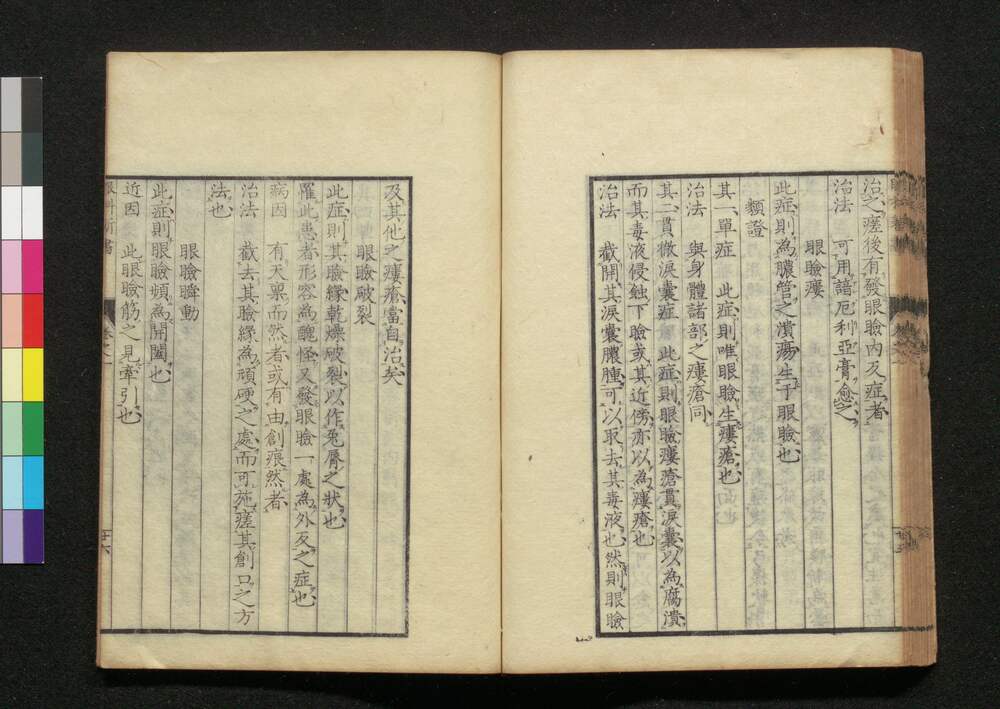 治之瘥後有發眼瞼內反症者
治法　可用諳厄利亞膏愈之
眼瞼瘻
此症則為膿管之潰瘍生于眼瞼也
類證
其一單症　此症則唯眼瞼生瘻瘡也
治法　與身體諸部之瘻瘡同
其二貫徹淚囊症　此症則眼瞼瘻瘡貫淚囊以為腐潰
而其毒液侵蝕下瞼或其近傍亦以為瘻瘡也
治法　截開其淚囊膿腫可以取去其毒液也然則眼瞼
及其他之瘻瘡當自治矣
眼瞼破裂
此症則其瞼緣乾燥破裂以作兔脣之狀也
罹此患者形容為醜怪又發眼瞼一處為外反之症也
病因　有天稟而然者或有由創痕然者
治法　截去其瞼緣為頑硬之處而可施瘥其創口之方
法也
眼瞼瞬動
此症則眼瞼頻為開闔也
近因　此眼瞼筋之見牽引也
眼科新書　卷之一　廿六